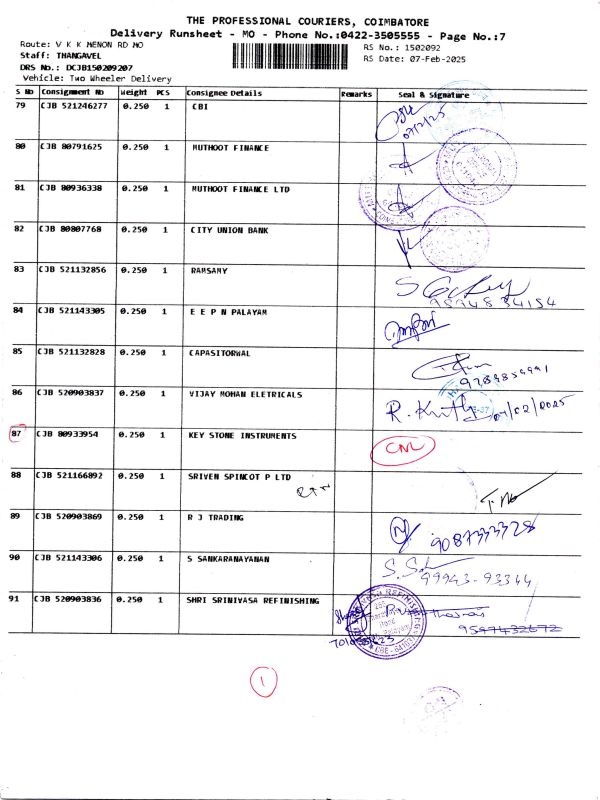 THE PROFESSIONAL COURIERS, COIMBATORE
Delivery Runsheet - MO - Phone No.:0422-3505555 - Page No.:7
Route: V K K MENON RD MO
RS No.: 1502092
Staff: THANGAVEL
RS Date: 07-Feb-2025
DRS No.: DCJB150209207
Vehicle: Two Wheeler Delivery
S No Consignment No Weight PCS Consignee Details Remarks Seal & Signature
79 CJB 521246277 0.250 1 CBI
07/2/25
80 CJB 80791625 0.250 1 MUTHOOT FINANCE
81 CJB 80936338 0.250 1 MUTHOOT FINANCE LTD
82 CJB 80807768 0.250 1 CITY UNION BANK
83 CJB 521132856 0.250 1 RAMSAMY
84 CJB 521143305 0.250 1 E E P N PALAYAM
85 CJB 521132828 0.250 1 CAPASITORWAL
86 CJB 520903837 0.250 1 VIJAY MOHAN ELETRICALS
07/02/2025
87 CJB 80933954 0.250 1 KEY STONE INSTRUMENTS
88 CJB 521166892 0.250 1 SRIVEN SPINCOT P LTD
89 CJB 520903869 0.250 1 R J TRADING
9087333328
90 CJB 521143306 0.250 1 S SANKARANAYANAN
99943-93344
91 CJB 520903836 0.250 1 SHRI SRINIVASA REFINISHING
9597432672
1